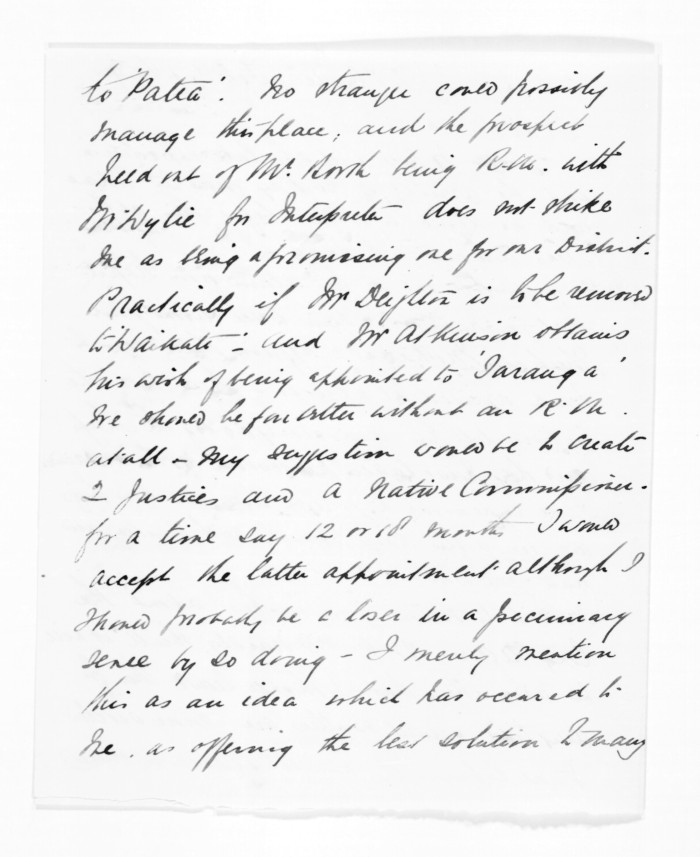 to 'Patea'. No stranger could possibly
manage this place, and the prospect
held out of Mr. Booth being R.M. with
Mr Wylie for Interpreter does not strike
me as being a promising one for our District.
Practically if Mr Deighton is to be removed
to Waikato – and Mr Atkinson obtains
his wish of being appointed to 'Tauranga'
we should be far better without an R.M.
at all – My suggestion would be to create
2 Justices and a Native Commissioner.
for a time say 12 or 18 months I would
accept the latter appointment although I
should probably be a loser in a pecuniary
sence by so doing – I merely mention
this as an idea which has occured to
me. as offering the best solution to many